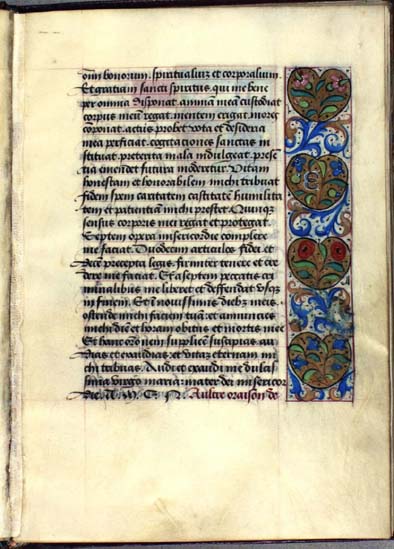 omniũ bonorum. spiritualiuz et corporalium.
Et gratiam sancti spiritus. qui me bene
per omnia disponat. animã meã custodiat
corpus meũ regat. mentem erigat. mores
componat. actus probet vota et desideria
mea perficiat. cogitaciones sanctas in
stituat. preterita mala indulgeat. presẽ
tia emendet futura moderetur. Vitam
honestam et honorabilem michi tribuat
fidem spem caritatem castitatẽ humilita
tem et patientiam michi prestet. Quinqz
sensus corporis mei regat et protegat.
Et septem opera misericordie complere
me faciat. Duodecim articulos fidei et
decẽ precepta legis. firmiter tenere et cre
dere me faciat. Et a septem peccatis cri
minalibus me liberet et deffendat vsqz
in finem. Et in nouissimis diebz meis.
ostẽde michi faciem tuã et annuncies
michi diẽ et horam obitus et mortis mee
Et hanc orõnem supplicẽ suscipias. au
dias et exaudias. et vitaz eternam mi
chi tribuas. Audi et exaudi me dulcis
sima virgo maria mater dei misericor
die. A. M. E. N. Aultre oraison de